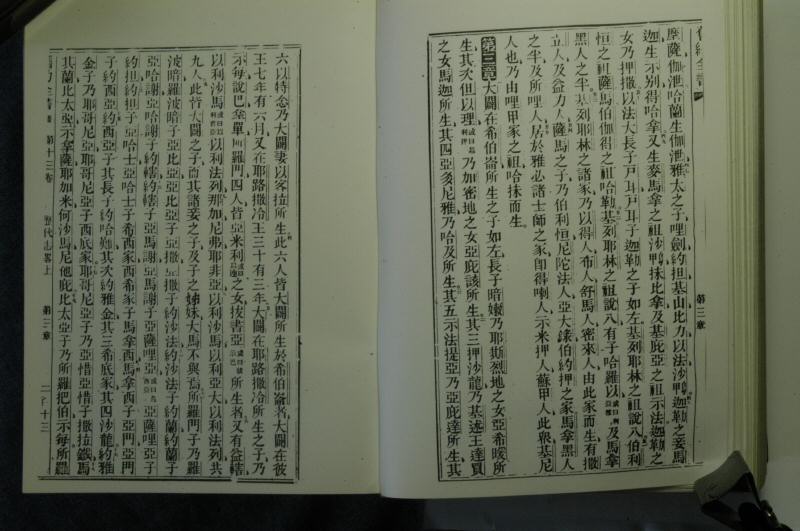 第三章
摩薩伽泄哈蘭生伽泄雅太之子哩劍約担基山比力以法沙鴨迦勒之妾馬
迦生示別得哈拿又生麥馬拿之祖沙鴨抹比拿及基庇亞之祖示法迦勒之
女乃押撒以法大長子戸耳戸耳子迦勒之子如左基列耶林之祖說八伯利
恒之祖薩馬伯伽得之祖哈勒基列耶林之祖說八有子哈羅以及馬拿
黑人之半基列耶林之諸家乃以得人布人舒馬人密來人由此家而生有撒
立人及益力人薩馬之子乃伯利恒尼陀法人亞大錄伯約押之家馬拿黑人
之半及所哩人居於雅必諸士師之家卽得喇人示米押人蘇甲人此輩基尼
人也乃由哩甲家之祖哈抹而生
第三章大闢在希伯崙所生之子如左長子暗嫩乃耶斯烈地之女亞希暖所
生其次但以理乃加密地之女亞庇該所生其三押沙龍乃基述王達買
之女馬迦所生其四亞多尼雅乃哈及所生其五示法提亞乃亞庇達所生其
六以特念乃大闢妻以客拉所生此六人皆大闢所生於希伯崙者大闢在彼
王七年有六月又在耶路撒冷王三十有三年大闢在耶路撒冷所生之子乃
示每說巴拿單所羅門四人皆亞米利之女拔書亞所生者又有益轄
以利沙馬以利法列那加尼弗耶非亞以利沙馬以利亞大以利法列共
九人此皆大闢之子而其諸妾之子及子之姊妹大馬不與焉所羅門子乃羅
波暗羅波暗子亞比亞亞比亞子亞撒亞撒子約沙法約沙法子約蘭約蘭子
亞哈謝亞哈謝子約轄約轄子亞馬謝亞馬謝子亞薩哩亞亞薩哩亞子
約担約担子亞哈士亞哈士子希西家希西家子馬拿西馬拿西子亞門亞門
子約西亞約西亞子其長子約哈難其次約雅金其三希底家其四沙龍約雅
金子乃耶哥尼亞耶哥尼亞子西底家耶哥尼亞子乃亞惜亞惜子撒拉鐵馬
其蘭比太亞示拿薩耶加米何沙馬尼他庇比太亞子乃所羅把伯示每所羅
第十三卷
歷代志畧上
第三章
二百十三